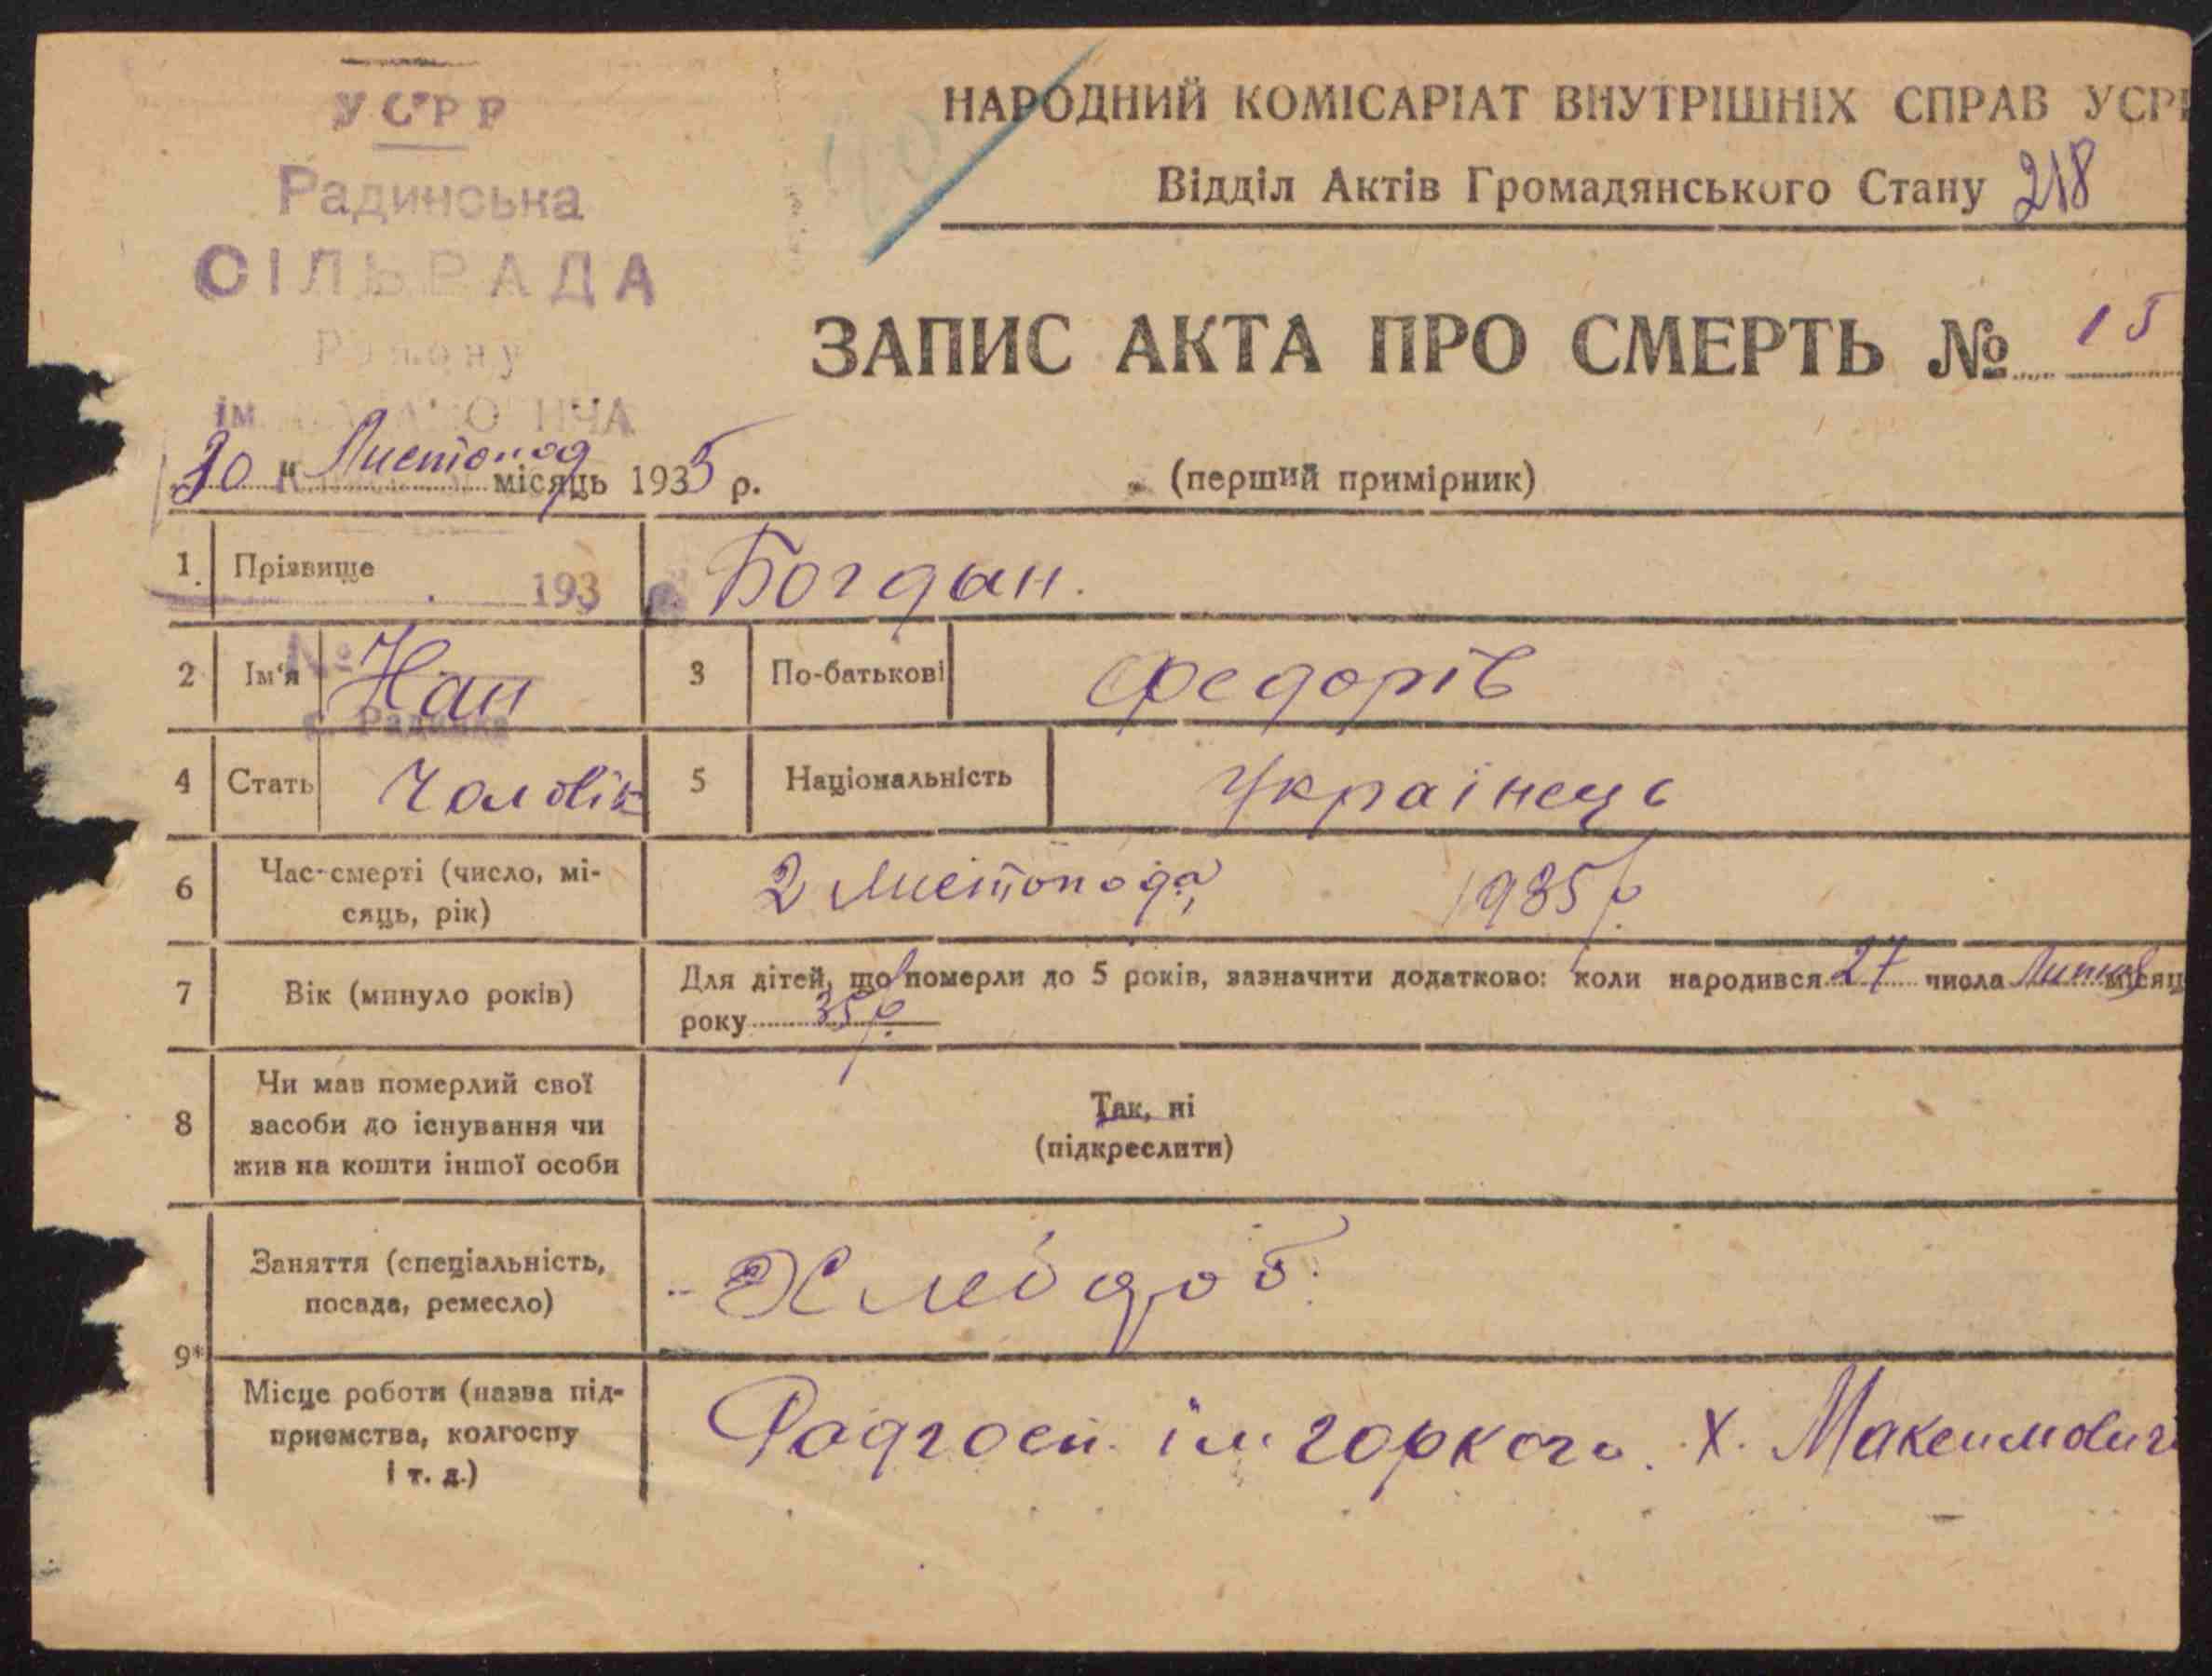 УСРР
Радинська
СІЛЬРАДА
Району
ім.
НАРОДНИЙ КОМІСАРІАТ ВНУТРІШНІХ СПРАВ УСРР
Відділ Актів Громадянського Стану 218
ЗАПИС АКТА ПРО СМЕРТЬ № 15
Листопад місяць 1935 р. (перший примірник)
1. Прізвище 193 р. Богдан.
2 Ім'я № 3 По-батькові Федорів
с. Радинка
4 Стать Чоловік 5 Національність Українець
6 Час смерті (число, мі-
сяць, рік) 2 Листопода 1935 р.
7 Вік (минуло років) Для дітей, що померли до 5 років, зазначити додатково: коли народився 27 числа місяц
року 35 р.
8 Чи мав померлий свої
засоби до існування чи
жив на кошти іншої особи
Так, ні
(підкреслити)
9* Заняття (спеціальність,
посада, ремесло) Хлібдоб.
Місце роботи (назва під-
приємства, колгоспу
і т. д.) Радгосп. ім. горкого. Х. Максимович